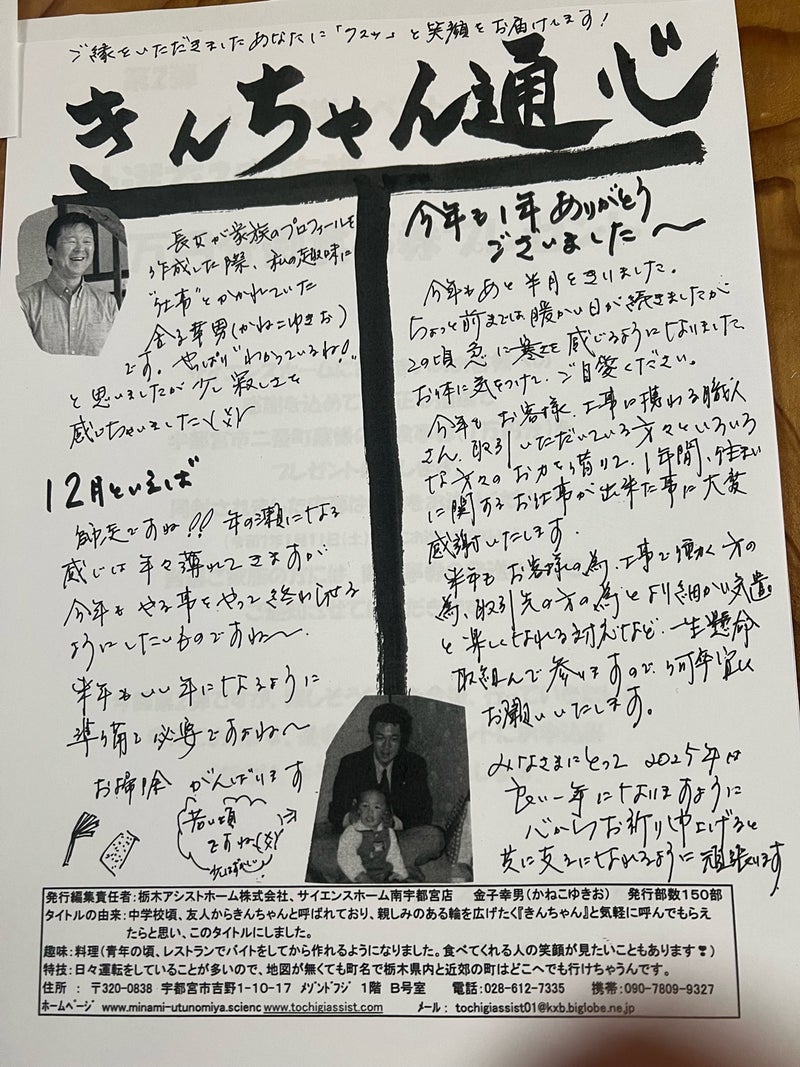 ご縁をいただきましたあなたに「クスッ」と笑顔をお届けします!
きんちゃん通心
長女が家族のプロフィールを
作成した際、私の趣味に
"仕事"とかかれていた
金子幸男(かねこゆきお)
です。やっぱり"わかっているね!!"
と思いましたが少し寂しさを
感じちゃいました
12月といえば
師走ですね!!年の瀬になる
感じは年々薄れてきますが
今年もやる事をやって終わらせる
ようにしたいものですね〜
来年もいい年になるように
準備も必要ですよね〜
お掃除 がんばります
若い頃
ですね(笑)
今年も1年ありがとう
ございました〜
今年もあと半月をきりました。
ちょっと前までは暖かい日が続きましたが
この頃急に寒さを感じるようになりました
お体に気をつけて、ご自愛ください。
今年も お客様、工事に携わる職人
さん、取引いただいている方々といろいろ
な方々のお力を借りて、1年間、住まい
に関するお仕事が出来た事に大変
感謝いたします。
来年も お客様の為、工事で働く方の
為、取引先の方の為と より細かい気遣い
と楽しくなれる対応など、一生懸命
取組んで参りますので、何卒宜しく
お願いいたします。
みなさまにとって 2025年は
良い一年になりますように
心からお祈り申上げると
共に支えになれるように頑張ります
発行編集責任者:栃木アシストホーム株式会社、サイエンスホーム南宇都宮店 金子幸男(かねこゆきお) 発行部数150部
タイトルの由来:中学校頃、友人からきんちゃんと呼ばれており、親しみのある輪を広げたく『きんちゃん』と気軽に呼んでもらえ
たらと思い、このタイトルにしました。
趣味:料理(青年の頃、レストランでバイトをしてから作れるようになりました。食べてくれる人の笑顔が見たいこともあります❣)
特技:日々運転をしていることが多いので、地図が無くても町名で栃木県内と近郊の町はどこへでも行けちゃうんです。
住所 : 〒320-0838 宇都宮市吉野1-10-17 ﾒｿﾞﾝﾄﾞﾌｼﾞ 1階 B号室 電話:028-612-7335 携帯:090-7809-9327
ﾎｰﾑﾍﾟｰｼﾞ www.minami-utunomiya.scienc www.tochigiassist.com メール: tochigiassist01@kxb.biglobe.ne.jp